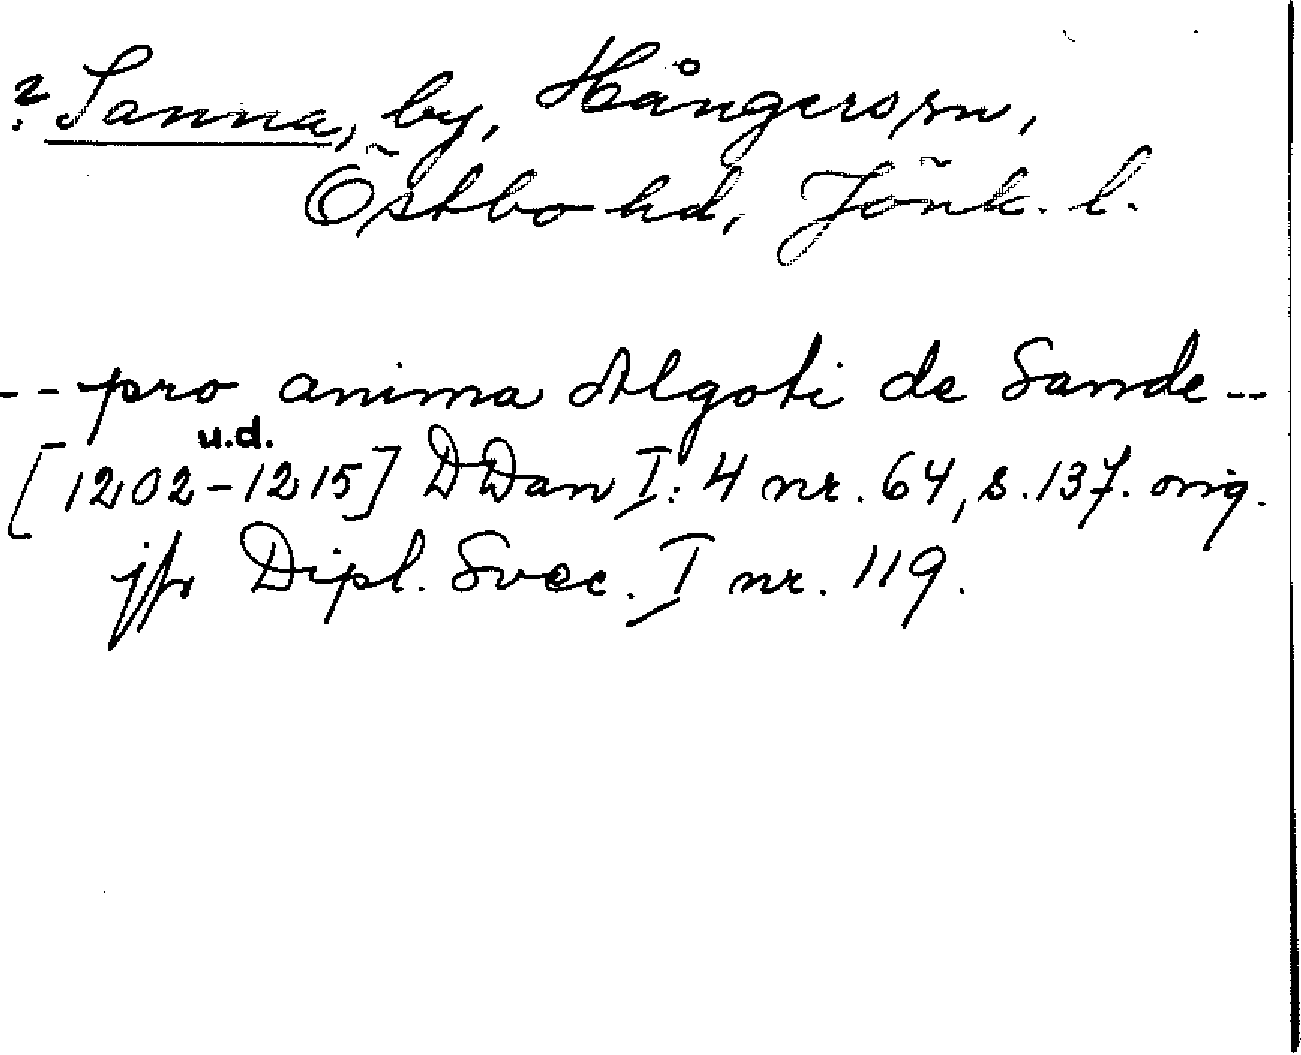 ? Sanna, by, Hångers sn,
Östbo hd, Jönk. l.
-- pro anima Algoti de Sande --
u.d.
[1202-1215] DDan I:4 nr. 64, s.137. orig.
jfr Dipl. Svec. I nr. 119.